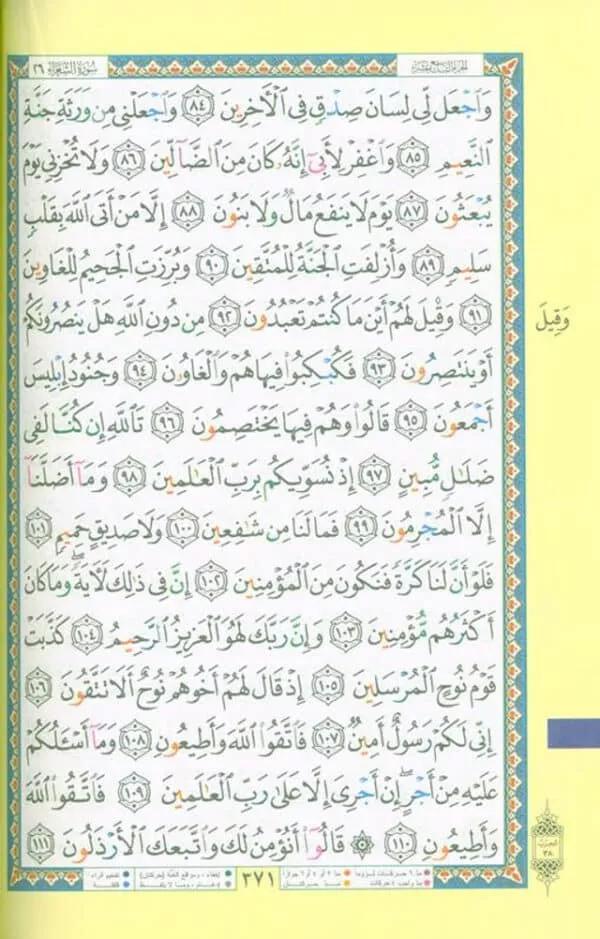 سورة الشعراء ٢٦
الجزء التاسع عشر
وَٱجۡعَل لِّي لِسَانَ صِدۡقٖ فِي ٱلۡأٓخِرِينَ ٨٤ وَٱجۡعَلۡنِي مِن وَرَثَةِ جَنَّةِ
ٱلنَّعِيمِ ٨٥ وَٱغۡفِرۡ لِأَبِيٓ إِنَّهُۥ كَانَ مِنَ ٱلضَّآلِّينَ ٨٦ وَلَا تُخۡزِنِي يَوۡمَ
يُبۡعَثُونَ ٨٧ يَوۡمَ لَا يَنفَعُ مَالٞ وَلَا بَنُونَ ٨٨ إِلَّا مَنۡ أَتَى ٱللَّهَ بِقَلۡبٖ
سَلِيمٖ ٨٩ وَأُزۡلِفَتِ ٱلۡجَنَّةُ لِلۡمُتَّقِينَ ٩٠ وَبُرِّزَتِ ٱلۡجَحِيمُ لِلۡغَاوِينَ
٩١ وَقِيلَ لَهُمۡ أَيۡنَ مَا كُنتُمۡ تَعۡبُدُونَ ٩٢ مِن دُونِ ٱللَّهِ هَلۡ يَنصُرُونَكُمۡ
وَقِيلَ
أَوۡ يَنتَصِرُونَ ٩٣ فَكُبۡكِبُواْ فِيهَا هُمۡ وَٱلۡغَاوُۥنَ ٩٤ وَجُنُودُ إِبۡلِيسَ
أَجۡمَعُونَ ٩٥ قَالُواْ وَهُمۡ فِيهَا يَخۡتَصِمُونَ ٩٦ تَٱللَّهِ إِن كُنَّا لَفِي
ضَلَٰلٖ مُّبِينٍ ٩٧ إِذۡ نُسَوِّيكُم بِرَبِّ ٱلۡعَٰلَمِينَ ٩٨ وَمَآ أَضَلَّنَآ
إِلَّا ٱلۡمُجۡرِمُونَ ٩٩ فَمَا لَنَا مِن شَٰفِعِينَ ١٠٠ وَلَا صَدِيقٍ حَمِيمٖ ١٠١
فَلَوۡ أَنَّ لَنَا كَرَّةٗ فَنَكُونَ مِنَ ٱلۡمُؤۡمِنِينَ ١٠٢ إِنَّ فِي ذَٰلِكَ لَأٓيَةٗۖ وَمَا كَانَ
أَكۡثَرُهُم مُّؤۡمِنِينَ ١٠٣ وَإِنَّ رَبَّكَ لَهُوَ ٱلۡعَزِيزُ ٱلرَّحِيمُ ١٠٤ كَذَّبَتۡ
قَوۡمُ نُوحٍ ٱلۡمُرۡسَلِينَ ١٠٥ إِذۡ قَالَ لَهُمۡ أَخُوهُمۡ نُوحٌ أَلَا تَتَّقُونَ ١٠٦
إِنِّي لَكُمۡ رَسُولٌ أَمِينٞ ١٠٧ فَٱتَّقُواْ ٱللَّهَ وَأَطِيعُونِ ١٠٨ وَمَآ أَسۡـَٔلُكُمۡ
عَلَيۡهِ مِنۡ أَجۡرٍۖ إِنۡ أَجۡرِيَ إِلَّا عَلَىٰ رَبِّ ٱلۡعَٰلَمِينَ ١٠٩ فَٱتَّقُواْ ٱللَّهَ
وَأَطِيعُونِ ١١٠ ۞ قَالُوٓاْ أَنُؤۡمِنُ لَكَ وَٱتَّبَعَكَ ٱلۡأَرۡذَلُونَ ١١١
الحزب
٣٨
٣٧١